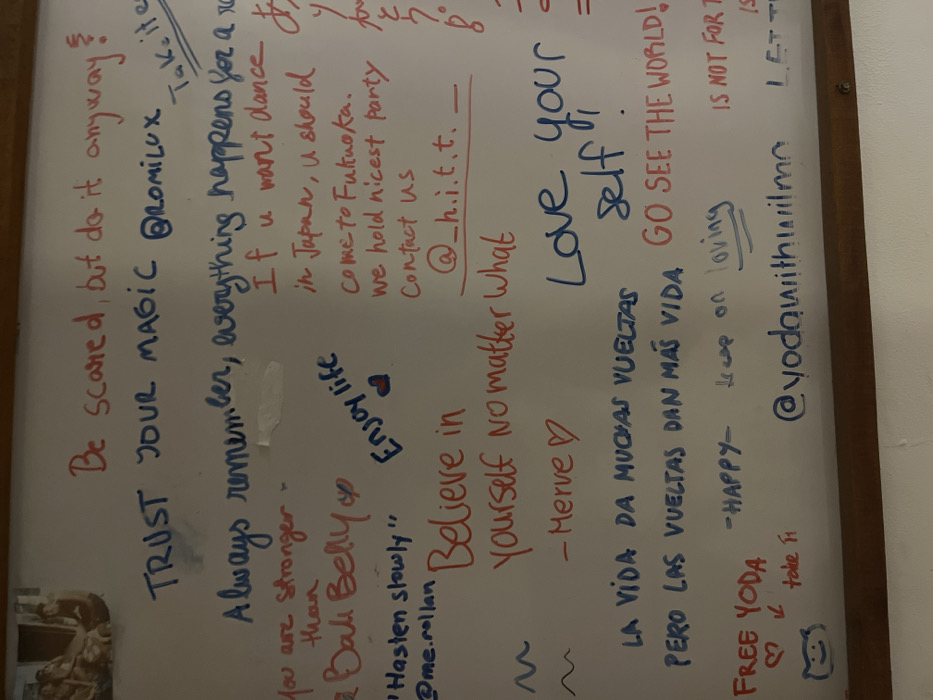 Be scared, but do it anyway!
TRUST YOUR MAGIC @ROMILUX
Always remember, everything happens for a
If u want dance
in Japan, u should
come to Fukuoka.
we hold nicest party
contact us
@_h.i.t.t._
You are stronger
than
a Bali Belly
Enjoy life
"Hasten slowly"
@me.rollan
Believe in
yourself no matter what
- Merve ♡
Love your
self!
LA VIDA DA MUCHAS VUELTAS
PERO LAS VUELTAS DAN MÁS VIDA
GO SEE THE WORLD!
IS NOT FOR
-HAPPY-
keep on loving
FREE YODA
♡ ↙
take it
@yodawithwilma
LET